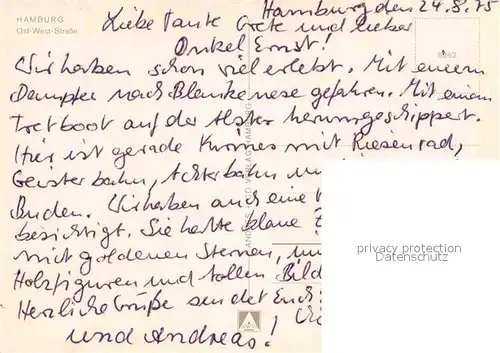 HAMBURG
Ost-West-Straße
Hamburg den 24.8.75
Liebe Tante Grete und lieber
Onkel Ernst!
Wir haben schon viel erlebt. Mit einem
Dampfer nach Blankenese gefahren. Mit einem
Tretboot auf der Alster herumgeschippert.
Hier ist gerade Kirmes mit Riesenrad,
Geisterbahn, Achterbahn
Buden. Wir haben auch eine
besichtigt. Sie hatte blaue
mit goldenen Sternen,
Holzfiguren und tollen Bild
Herzliche Grüße sendet Euch
und Andreas!
VERLAG HAMBURG
privacy protection
Datenschutz